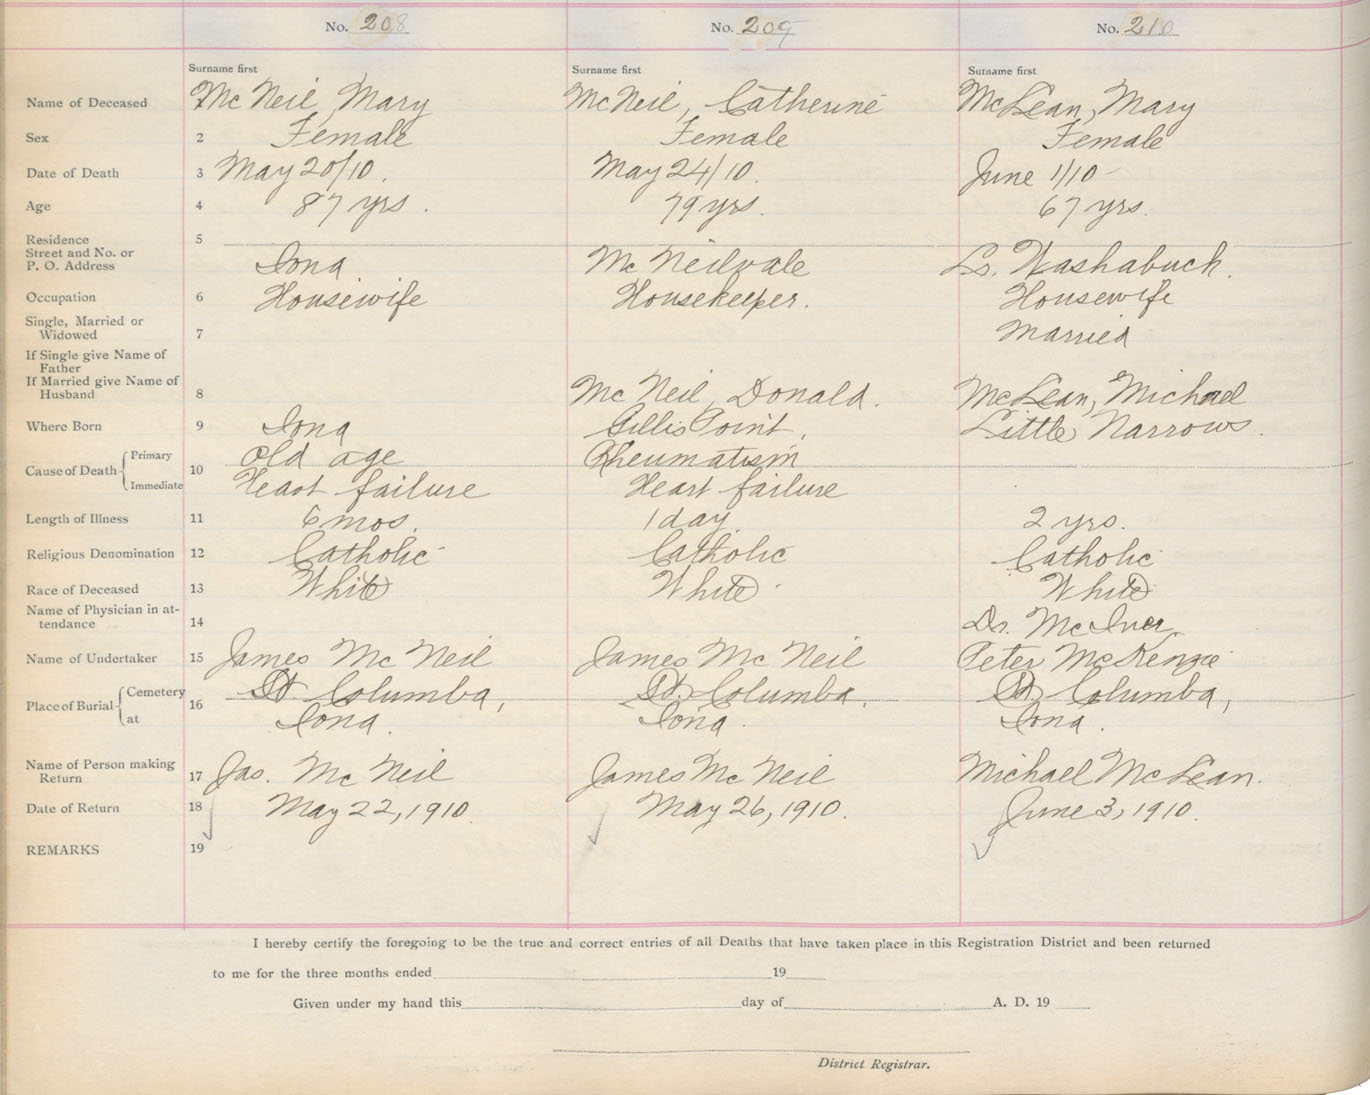 No. 208 No. 209 No. 210
Surname first Surname first Surname first
Name of Deceased 1 McNeil, Mary McNeil, Catherine McLean, Mary
Sex 2 Female Female Female
Date of Death 3 May 20/10. May 24/10. June 1/10
Age 4 87 yrs. 79 yrs. 67 yrs.
Residence 5
Street and No. or
P. O. Address Iona McNeilvale Lr. Washabuck.
Occupation 6 Housewife Housekeeper. Housewife
Single, Married or
Widowed 7 Married
If Single give Name of
Father
If Married give Name of
Husband 8 McNeil, Donald. McLean, Michael
Where Born 9 Iona Gillis Point. Little Narrows.
Cause of Death Primary 10 Old age Rheumatism
Immediate Heart failure Heart failure
Length of Illness 11 6 mos. 1 day. 2 yrs.
Religious Denomination 12 Catholic Catholic Catholic
Race of Deceased 13 White White White
Name of Physician in at-
tendance 14 Dr. McIver.
Name of Undertaker 15 James McNeil James McNeil Peter McKenzie
Place of Burial Cemetery 16 St. Columba, St. Columba, St. Columba,
at Iona. Iona. Iona.
Name of Person making
Return 17 Jas. McNeil James McNeil Michael McLean.
Date of Return 18 May 22, 1910. May 26, 1910. June 3, 1910.
REMARKS 19
I hereby certify the foregoing to be the true and correct entries of all Deaths that have taken place in this Registration District and been returned
to me for the three months ended 19
Given under my hand this day of A. D. 19
District Registrar.